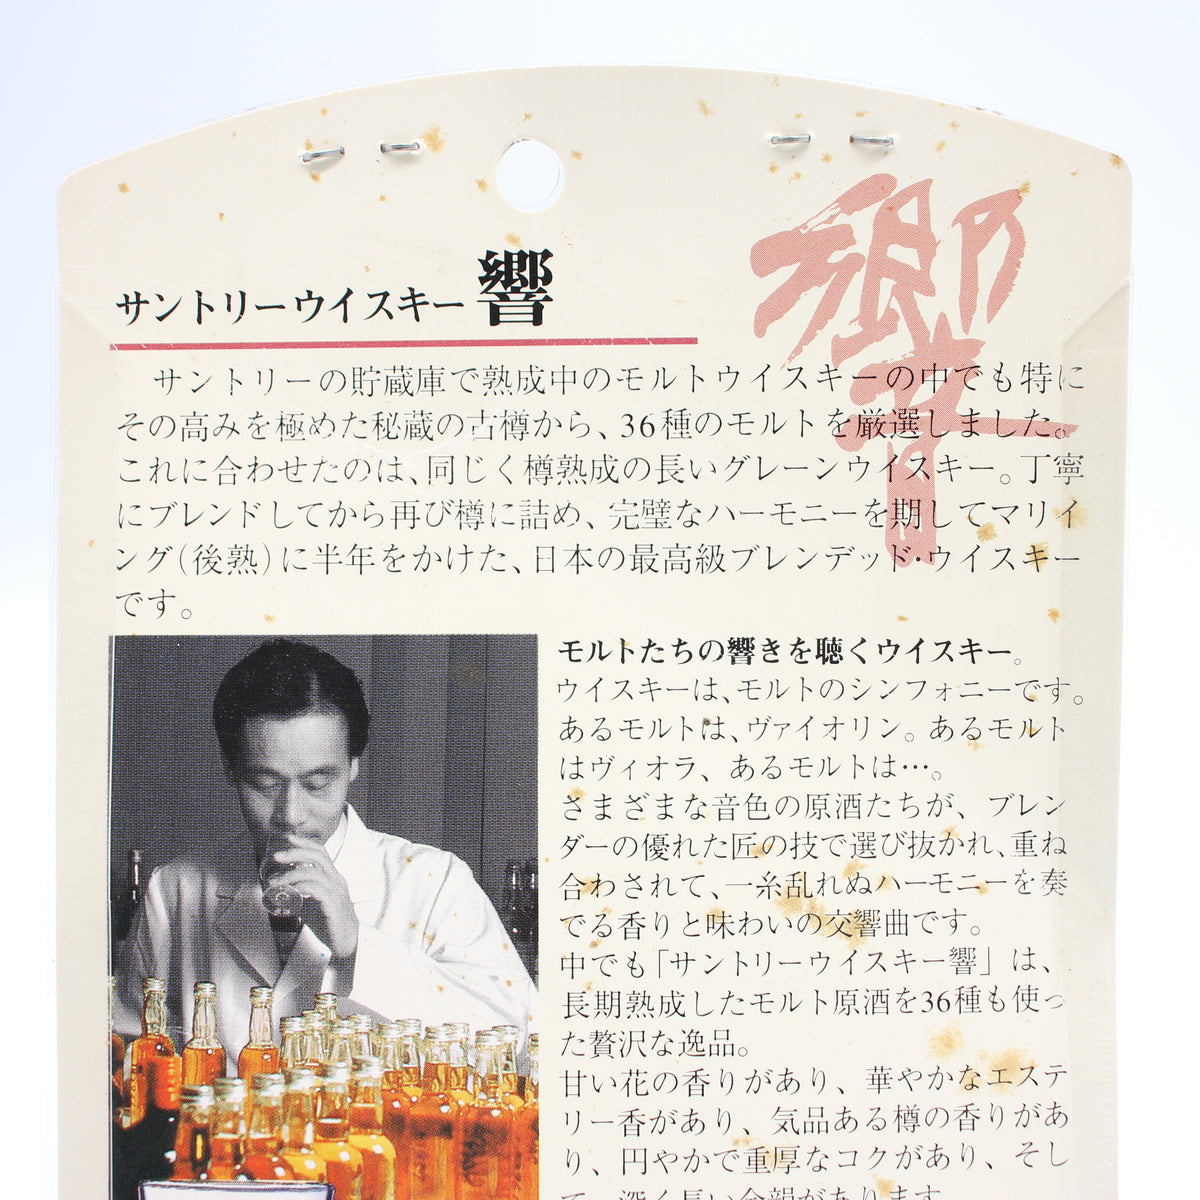 響
サントリーウイスキー 響
サントリーの貯蔵庫で熟成中のモルトウイスキーの中でも特に
その高みを極めた秘蔵の古樽から、36種のモルトを厳選しました。
これに合わせたのは、同じく樽熟成の長いグレーンウイスキー。丁寧
にブレンドしてから再び樽に詰め、完璧なハーモニーを期してマリイ
ング(後熟)に半年をかけた、日本の最高級ブレンデッド・ウイスキー
です。
モルトたちの響きを聴くウイスキー。
ウイスキーは、モルトのシンフォニーです。
あるモルトは、ヴァイオリン。あるモルト
はヴィオラ、あるモルトは…。
さまざまな音色の原酒たちが、ブレン
ダーの優れた匠の技で選び抜かれ、重ね
合わされて、一糸乱れぬハーモニーを奏
でる香りと味わいの交響曲です。
中でも「サントリーウイスキー響」は、
長期熟成したモルト原酒を36種も使っ
た贅沢な逸品。
甘い花の香りがあり、華やかなエステ
リー香があり、気品ある樽の香りがあ
り、円やかで重厚なコクがあり、そし
て、深く長い余韻があります。